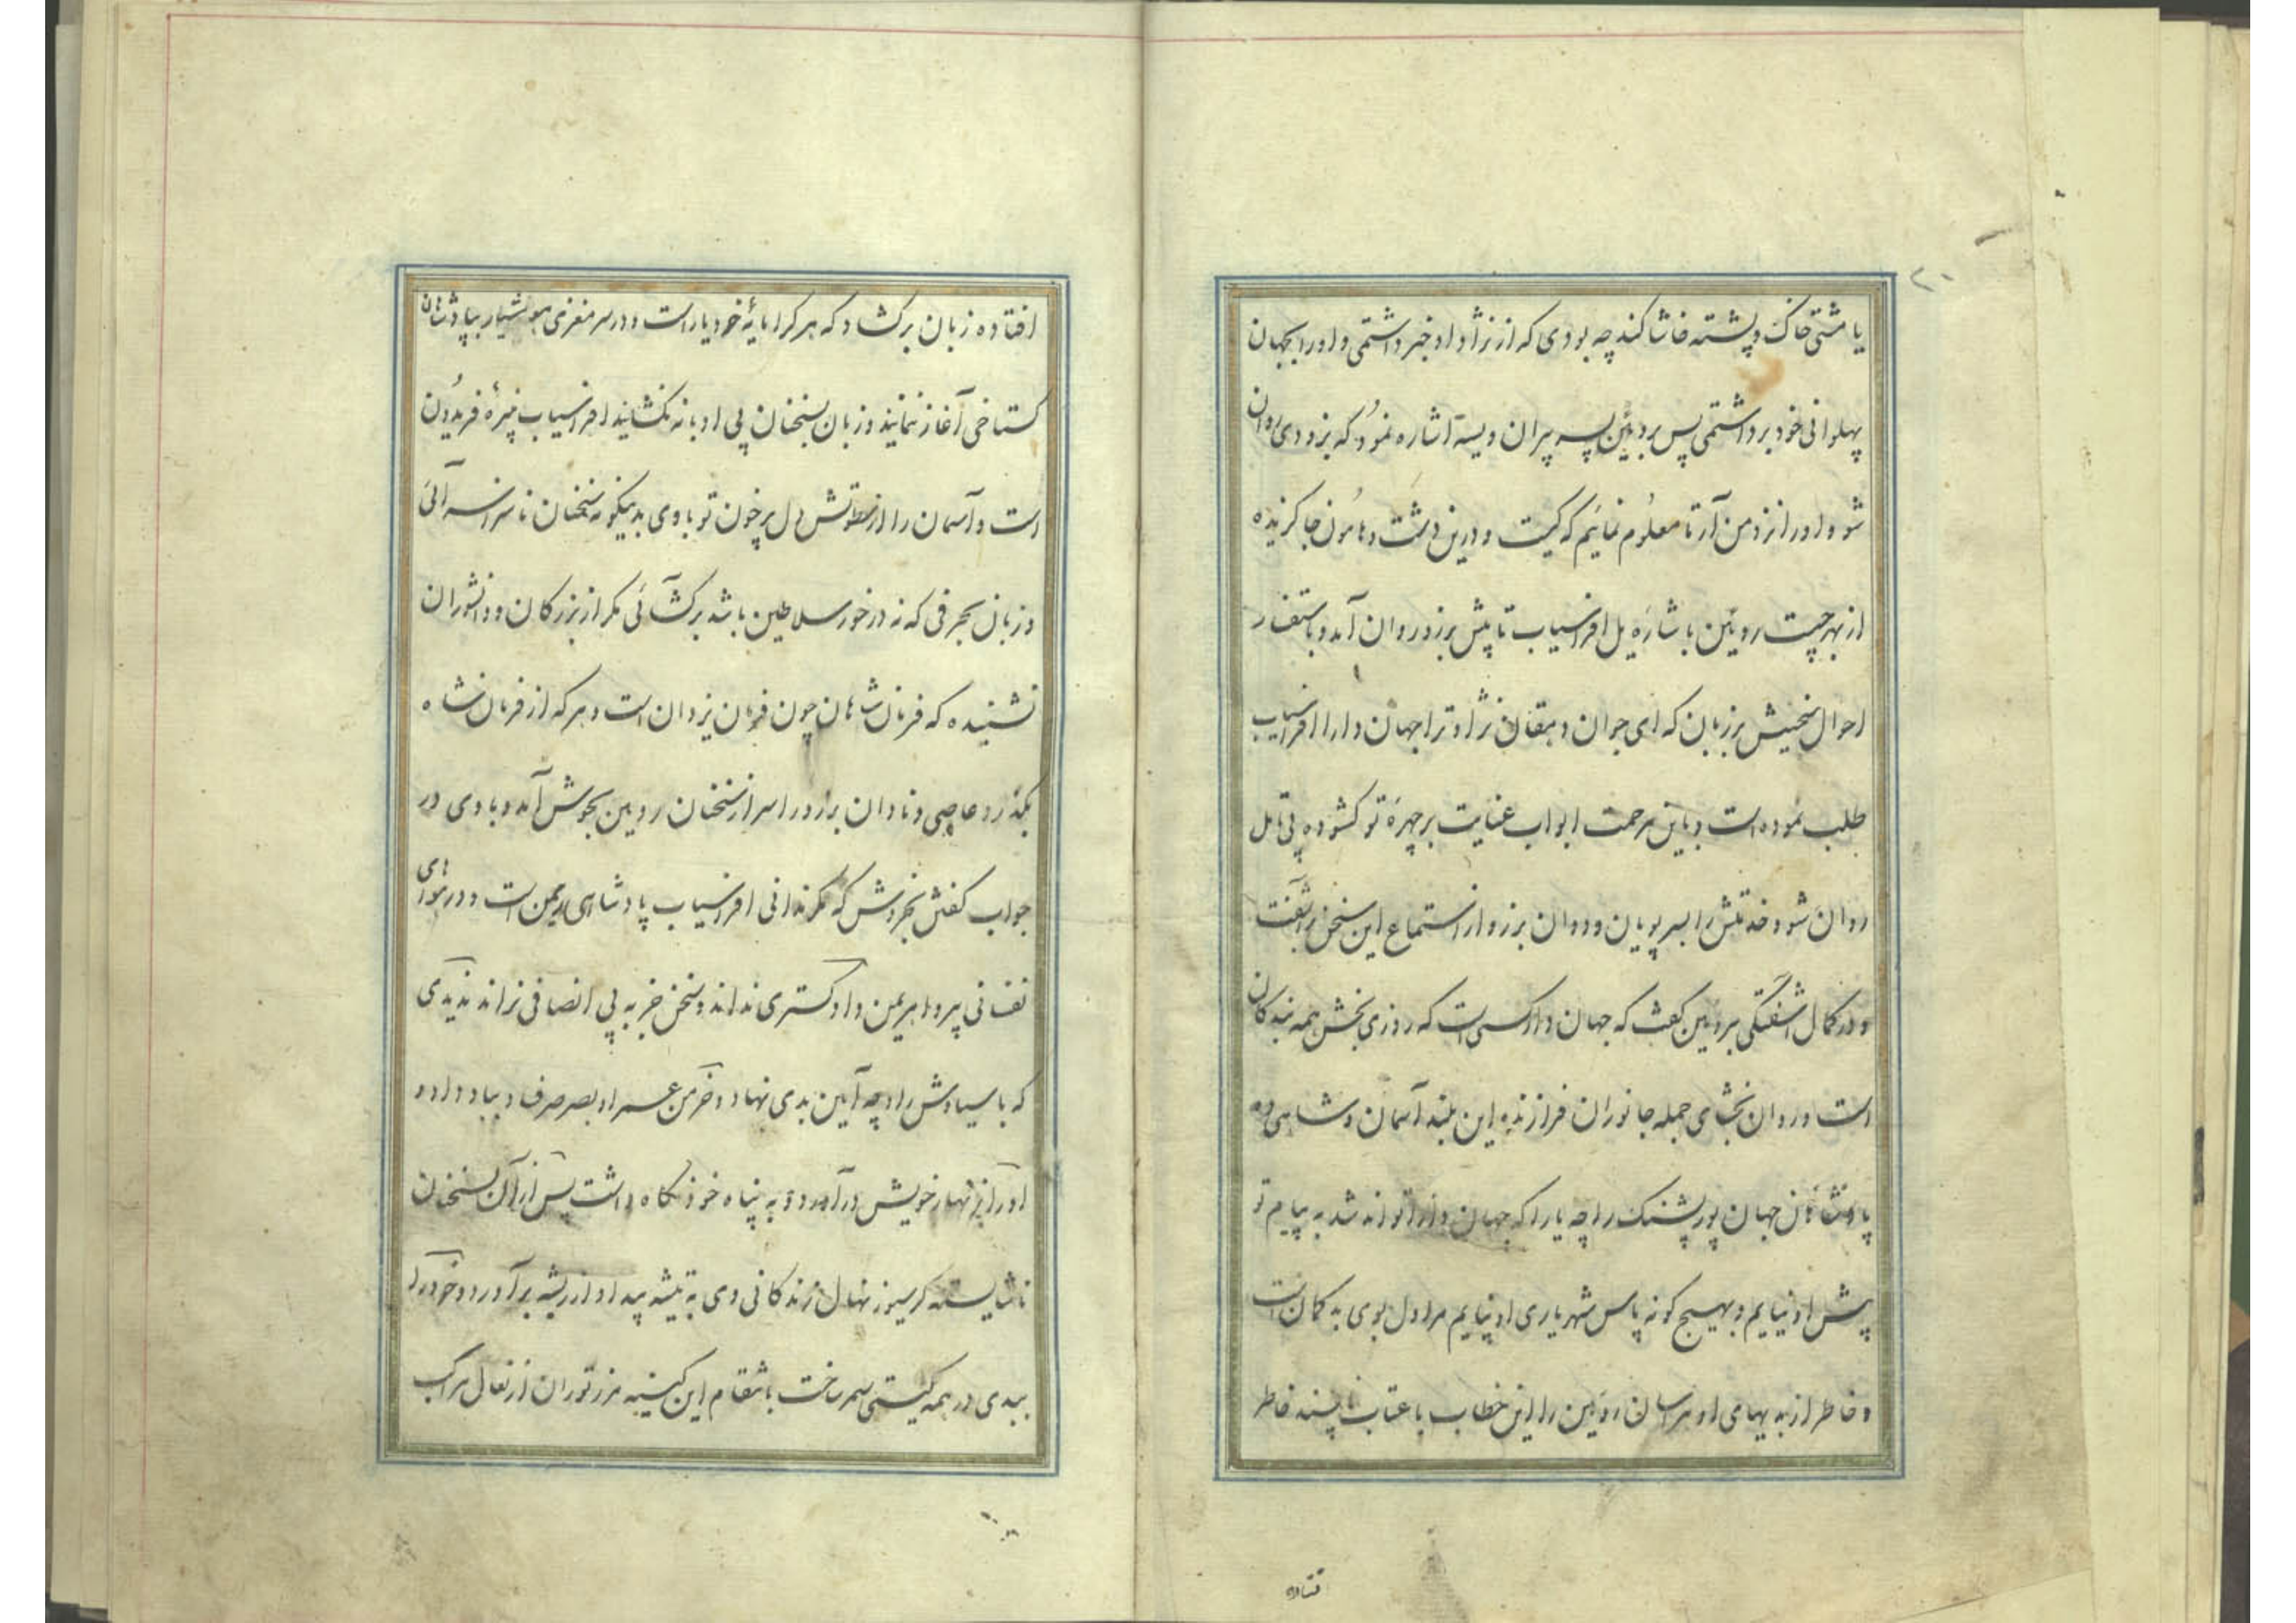 ۲۰
یا مشتی خاک و پشته خاشاکند چه بودی که از نژاد او خبر داشتمی و اورا بجهان
پهلوانی خود برداشتمی پس بروئین پسر پیران ویسه اشاره نمود که بزودی روان
شو و اورا نزد من آر تا معلوم نمایم که کیست و درین دشت و هامون جا گزیده
از بهر چیست روئین باشاره یل افراسیاب تا پیش برزو روان آمد و باستفسار
احوال سخنش بر زبان که ای جوان دهقان نژاد ترا جهان دارا افراسیاب
طلب نموده است و باین مرحمت ابواب عنایت بر چهره تو کشوده بی تامل
روان شو و خدمتش را بسر پویان و دوان برزو از استماع این سخن برآشفت
و در کمال آشفتگی بروئین کفت که جهان دار کسی است که روزی بخش همه بندکان
است و روان بخشای جمله جانوران فرازنده این بلند آسمان و شاهی ده
پادشاهان جهان پور پشنک را چه یارا که جهان دار تواند شد به پیام تو
پیش او نیایم و بهیچ کونه پاس شهریاری او نپایم مرا دل بوی بد کمان است
و خاطر از بدیهای او هراسان روئین را این خطاب با عتاب ناپسند خاطر
فتاده
افتاده زبان برکشاد که هر کرا پایهٔ خود یار است و در سر مغزی هوشیار بپادشاهان
کستاخی آغاز ننمایند و زبان بسخنان بی ادبانه نکشایند افراسیاب نبیرهٔ فریدون
است و آسمان را از سطوتش دل پر خون تو باوی بدینگونه سخنان ناسزا سرائی
و زبان بحرفی که نه در خور سلاطین باشد برکشائی مکر از بزرکان و دانشوران
نشنیده که فرمان شاهان چون فرمان یزدان است و هر که از فرمان شاه
بگذرد عاصی و نادان برزو را سر از سخنان روئین بجوش آمد و باوی در
جواب کفتن بخروش که مکر ندانی افراسیاب پادشاهی ریمن است و در هوای
نفسانی پیرو اهریمن داد کستری نداند و سخن جز به بی انصافی نراند ندیدی
که با سیاوش راد چه آیین بدی نهاد و خرمن عمر او بصرصر فنا داد و
اورا بزنهار خویش درآورد و به پناه خود نگاه داشت پس از آن بسخنان
ناشایسته کرسیوز نهال زندکانی وی به تیشه بیداد از ریشه برآورد و خود را
ببدی در همه کیتی سمر ساخت بانتقام این کینه مرز توران از نعال مراکب